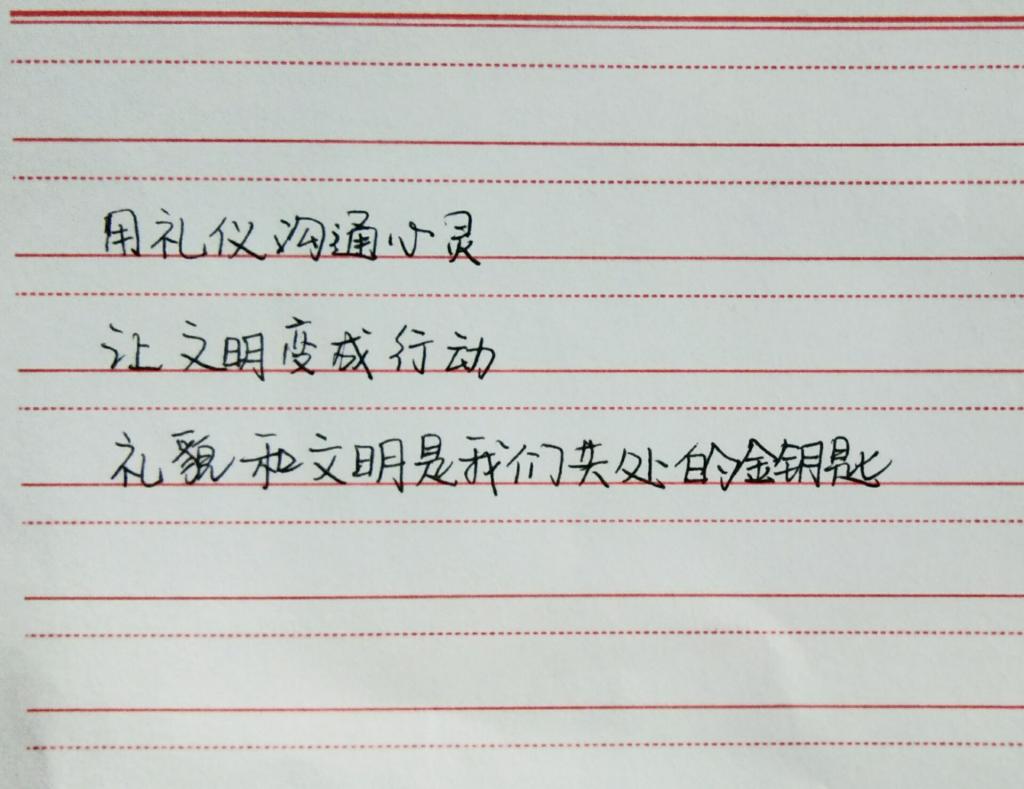 用礼仪沟通心灵
让文明变成行动
礼貌和文明是我们共处的金钥匙